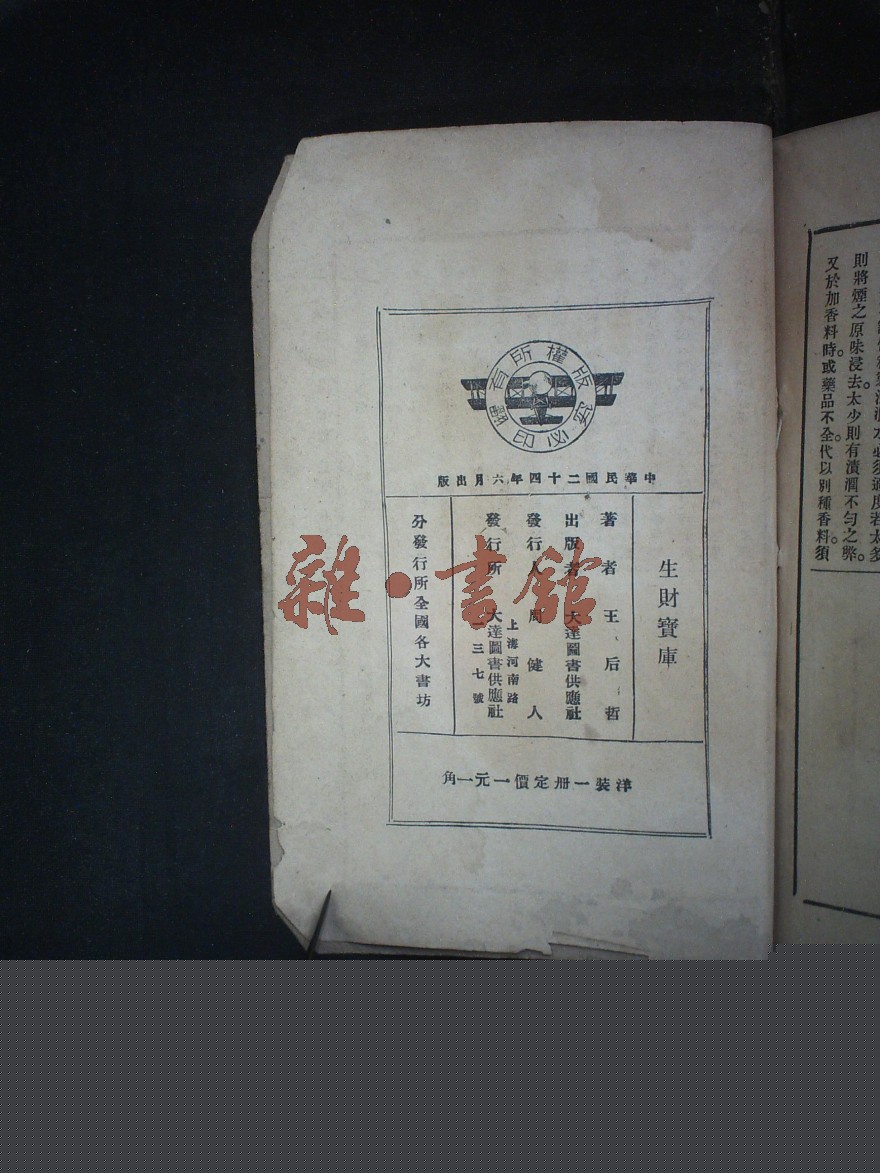 則將煙之原味浸去。太少則有漬潤不勻之弊。
又於加香料時。或藥品不全。代以別種香料。須
版權所有
翻印必究
中華民國二十四年六月出版
生財寶庫
著者 王后哲
出版者 大達圖書供應社
發行人 周健人
上海河南路
發行所 大達圖書供應社
二三七號
分發行所全國各大書坊
洋裝一冊定價一元一角
雜·書館